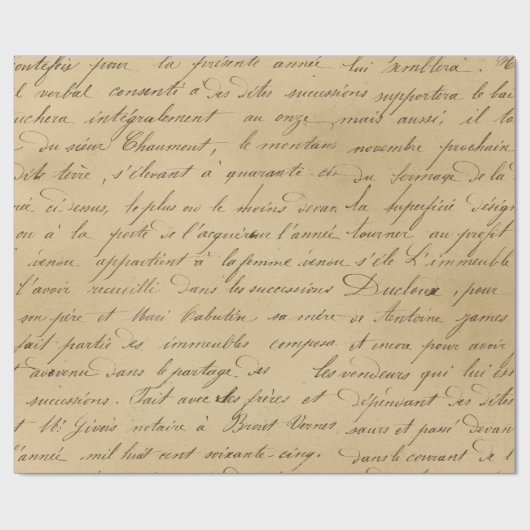 toutefois pour la présente année lui semblera.
l verbal consenti à des dites successions supportera le bai
uchera intégralement au onze mais aussi, il to
du sieur Chaumont, le montans novembre prochain
dit terre, s'élevant à quaranti-cin du fermage de la
ée ci denus, le plus ou le moins devan la superficie désign
ou à la perte de l'acquireur l'année tourner au profit
venou appartient à la femme venou s'éle L'immeuble
l'avoir recueilli dans les successions Ducloux, pour
son père et Mari Cabutin sa mère de Antoine james
fait partie des immeubles composa et encore pour avoir
t avevenu dans le partage des les vendeurs qui lui es
successions. Fait avec ses frères et dépendant des dites
t Mr Givois notaire à Brout Vernes sœurs et passé devan
l'année mil huit cent soixante-cinq. dans le courant de l